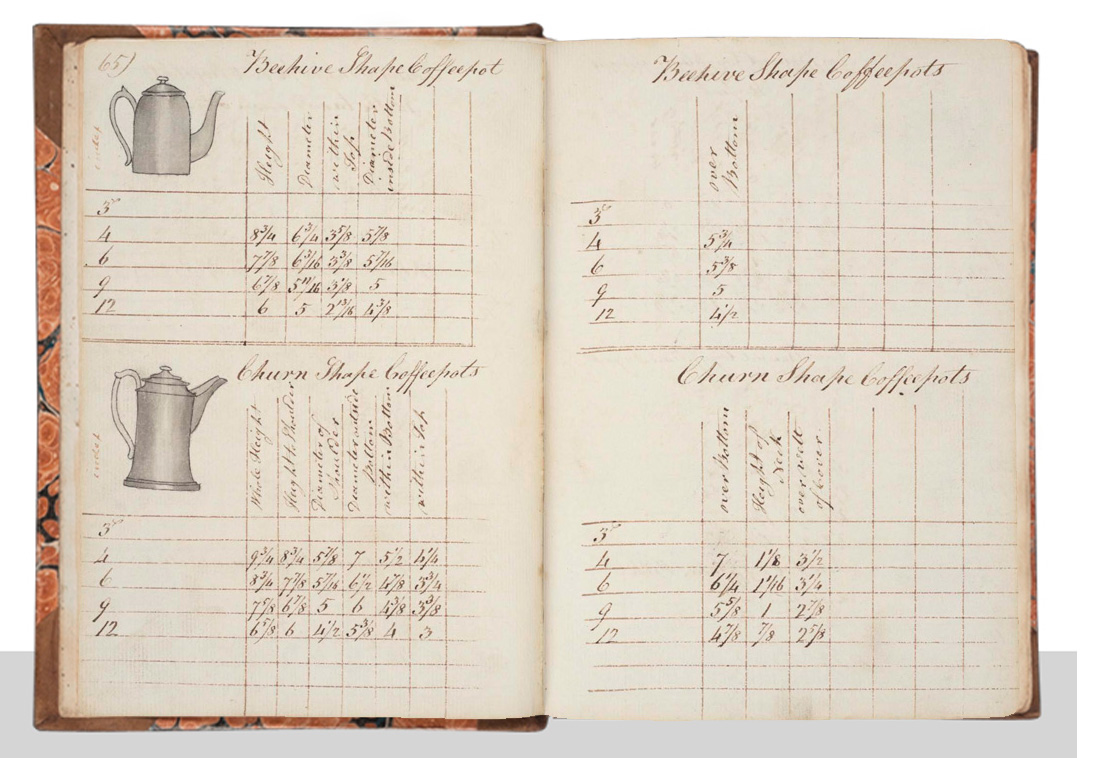 65)
Beehive Shape Coffeepot
index
Height
Diameter
within Top
Diameter inside Bottom
3
4 8 3/4 6 3/4 3 5/8 5 7/8
6 7 7/8 6 3/16 3 3/8 5 7/16
9 6 7/8 5 11/16 3 1/8 5
12 6 5 2 13/16 4 3/8
Churn Shape Coffeepots
index
Whole Height
Height to Shoulder
Diameter of Shoulder
Diameter outside Bottom
within Bottom
within Top
3
4 9 3/4 8 3/4 5 7/8 7 5 1/2 4 1/4
6 8 3/4 7 7/8 5 7/16 6 1/2 4 7/8 3 3/4
9 7 5/8 6 7/8 5 6 4 3/8 3 3/8
12 6 5/8 6 4 1/2 5 3/8 4 3
Beehive Shape Coffeepots
over Bottom
3
4 5 3/4
6 5 3/8
9 5
12 4 1/2
Churn Shape Coffeepots
over Bottom
Height of Neck
over welt of cover
3
4 7 1 1/8 3 1/2
6 6 1/4 1 1/16 3 1/4
9 5 5/8 1 2 7/8
12 4 7/8 7/8 2 5/8